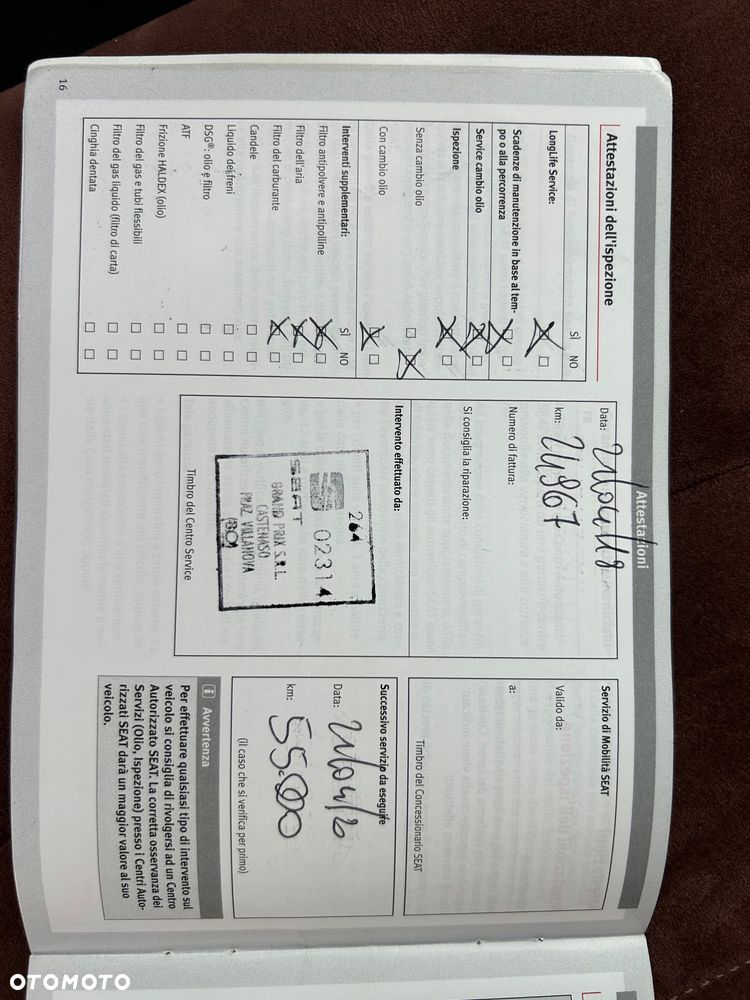 Attestazioni
Attestazioni dell'ispezione
SÌ NO
LongLife Service:
Scadenze di manutenzione in base al tem-
po o alla percorrenza
Service cambio olio
Ispezione
Senza cambio olio
Con cambio olio
Interventi supplementari: SÌ NO
Filtro antipolvere e antipolline
Filtro dell'aria
Filtro del carburante
Candele
Liquido dei freni
DSG®: olio e filtro
ATF
Frizione HALDEX (olio)
Filtro del gas e tubi flessibili
Filtro del gas liquido (filtro di carta)
Cinghia dentata
16
Data:
km: 24967
Numero di fattura:
Si consiglia la riparazione:
Intervento effettuato da:
264
02314
SEAT
GRAND PRIX S.R.L.
CASTENASO
FRAZ. VILLANOVA
(BO)
Timbro del Centro Service
Servizio di Mobilità SEAT
Valido da:
a:
Timbro del Concessionario SEAT
Successivo servizio da eseguire
Data:
km: 55.000
(il caso che si verifica per primo)
i Avvertenza
Per effettuare qualsiasi tipo di intervento sul
veicolo si consiglia di rivolgersi ad un Centro
Autorizzato SEAT. La corretta osservanza dei
Servizi (Olio, Ispezione) presso i Centri Auto-
rizzati SEAT darà un maggior valore al suo
veicolo.
OTOMOTO